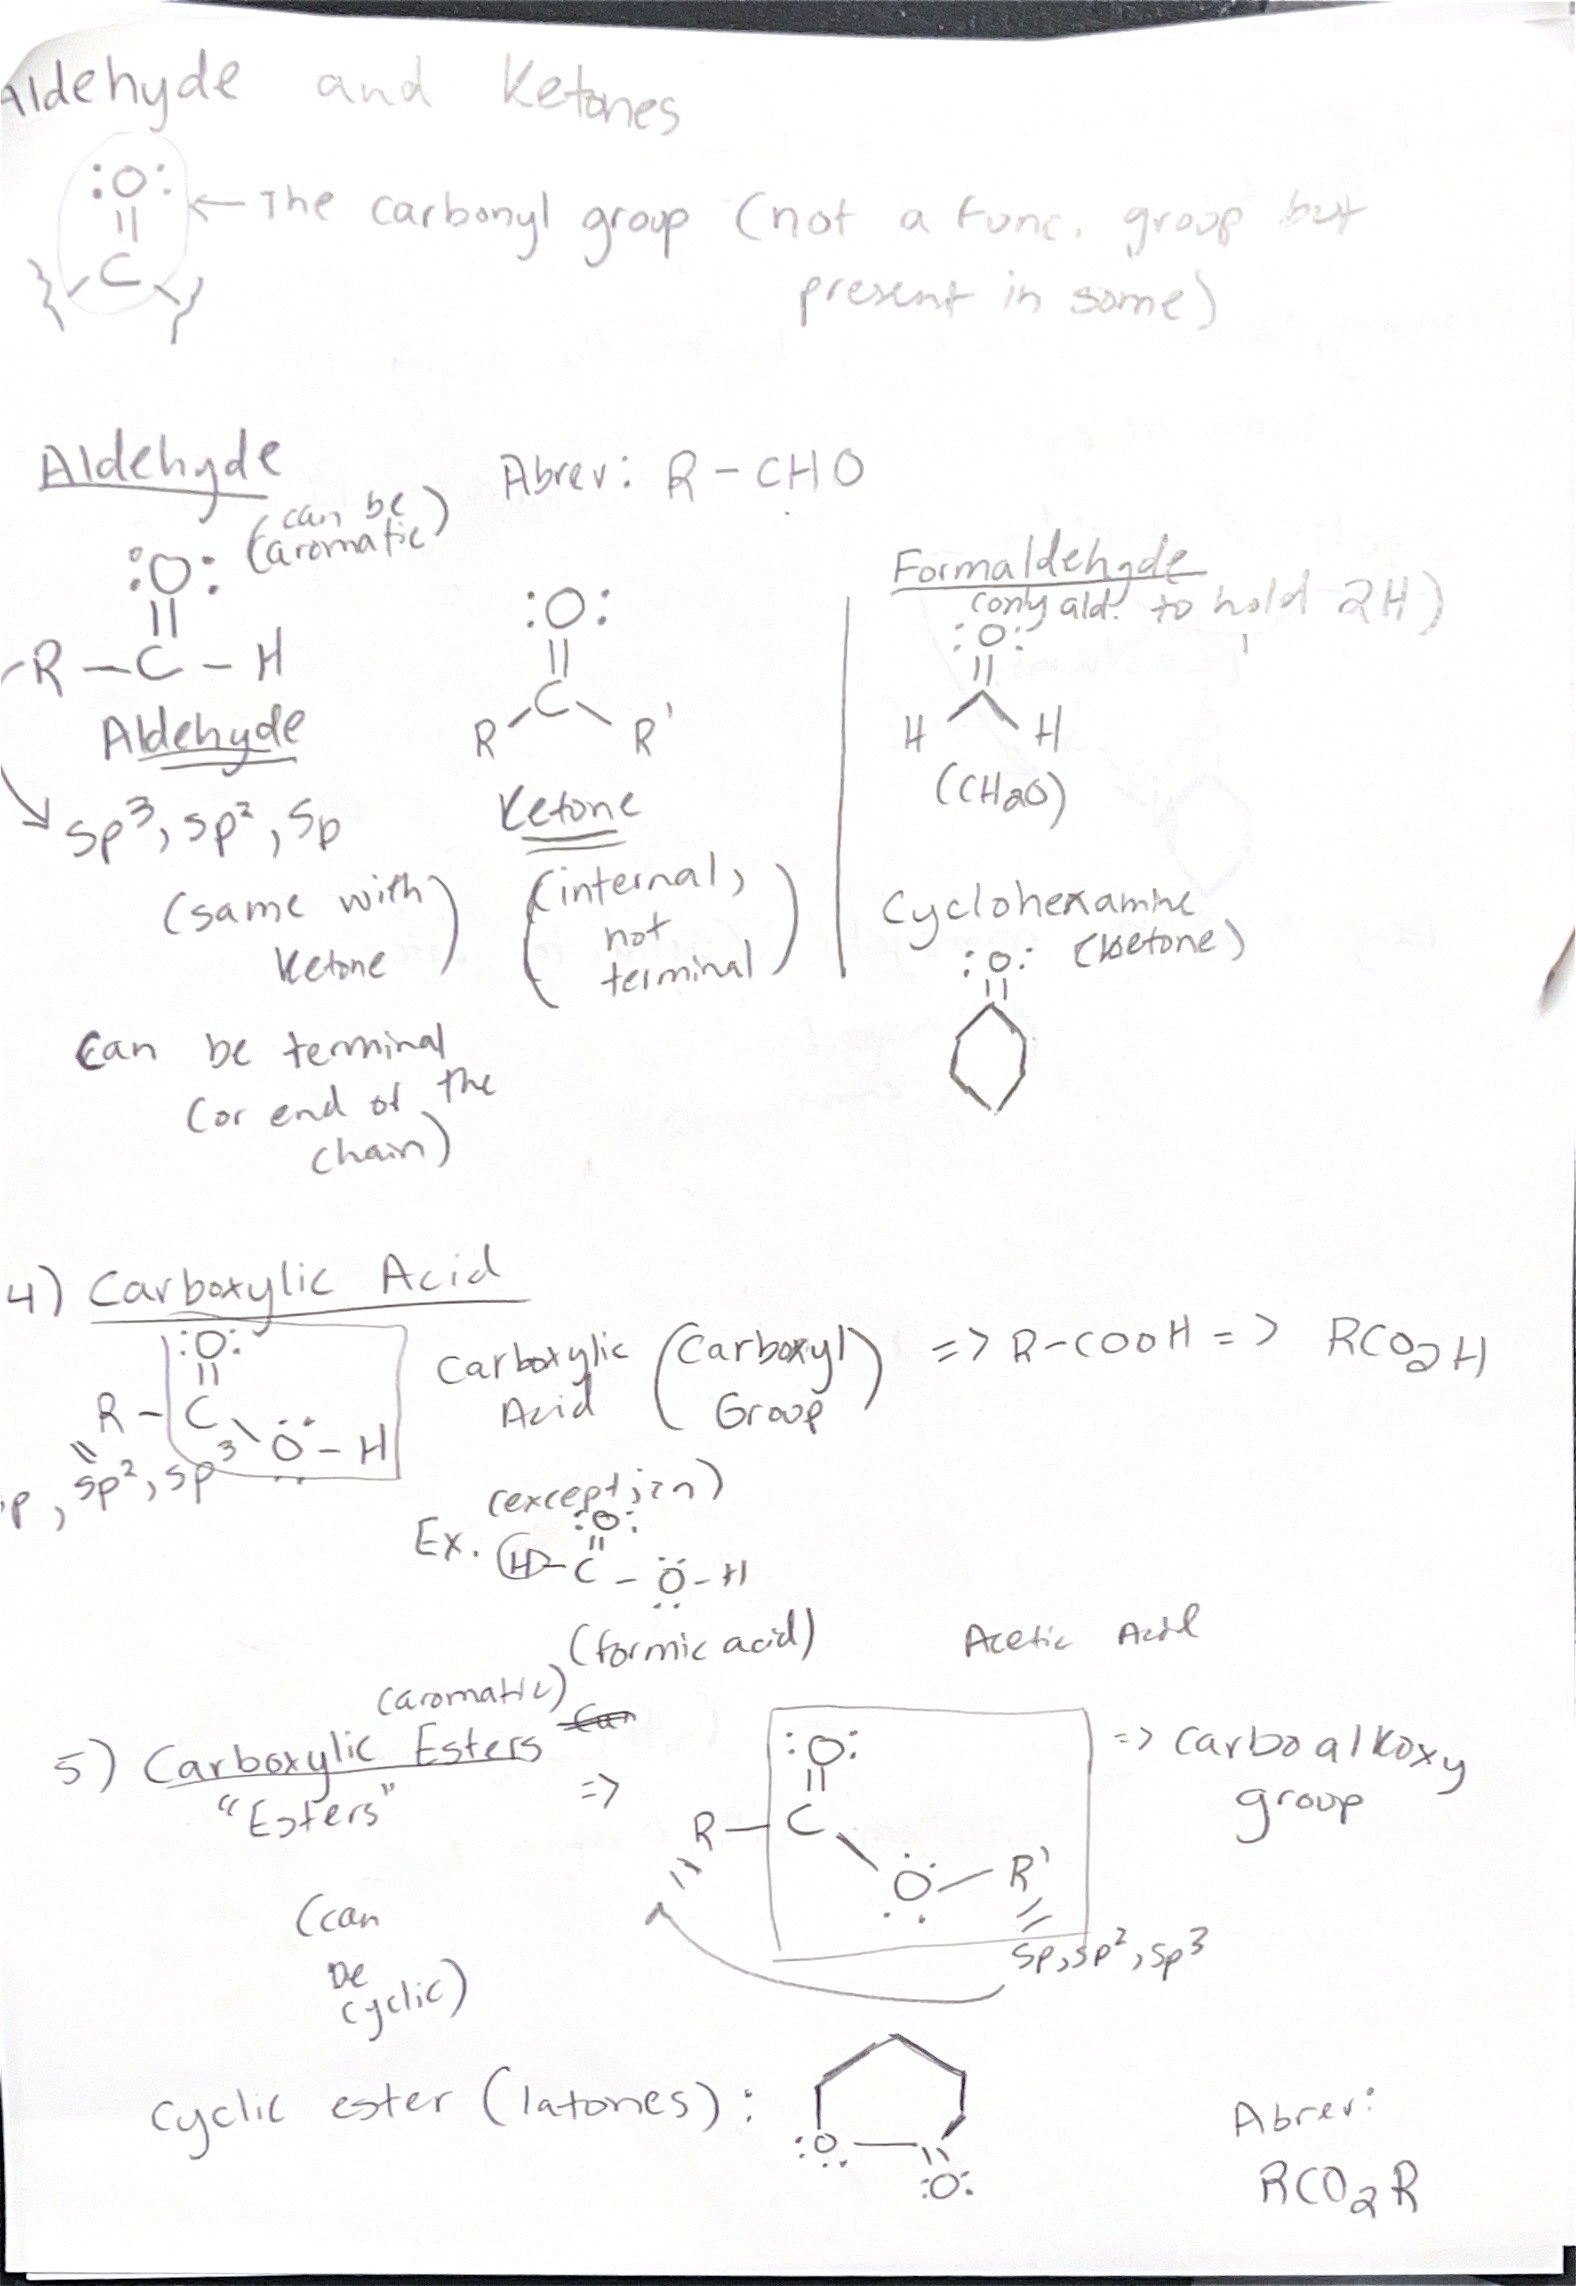 Aldehyde and Ketones
:O:
||
C
← The carbonyl group (not a func. group but
present in some)
Aldehyde
Abrev: R-CHO
(can be
aromatic)
:O:
||
R-C-H
Aldehyde
sp³, sp², sp
(same with
ketone
)
can be terminal
(or end of the
chain)
:O:
||
C
R R'
Ketone
(internal,
not
terminal)
Formaldehyde
(only ald. to hold 2H)
:O:
||
H H
(CH2O)
Cyclohexamine
(ketone)
:O:
||
4) Carboxylic Acid
:O:
||
R-C
O-H
sp², sp³
Carboxylic
Acid
(Carboxyl
Group)
=> R-COOH => RCO2H
(exception)
Ex.
:O:
||
H-C-O-H
(formic acid)
Acetic Acid
(aromatic)
5) Carboxylic Esters
"Esters"
=>
:O:
||
R-C
O-R'
sp, sp², sp³
=> carboalkoxy
group
(can
be
cyclic)
cyclic ester (latones):
:O
||
:O:
Abrev:
RCO2R